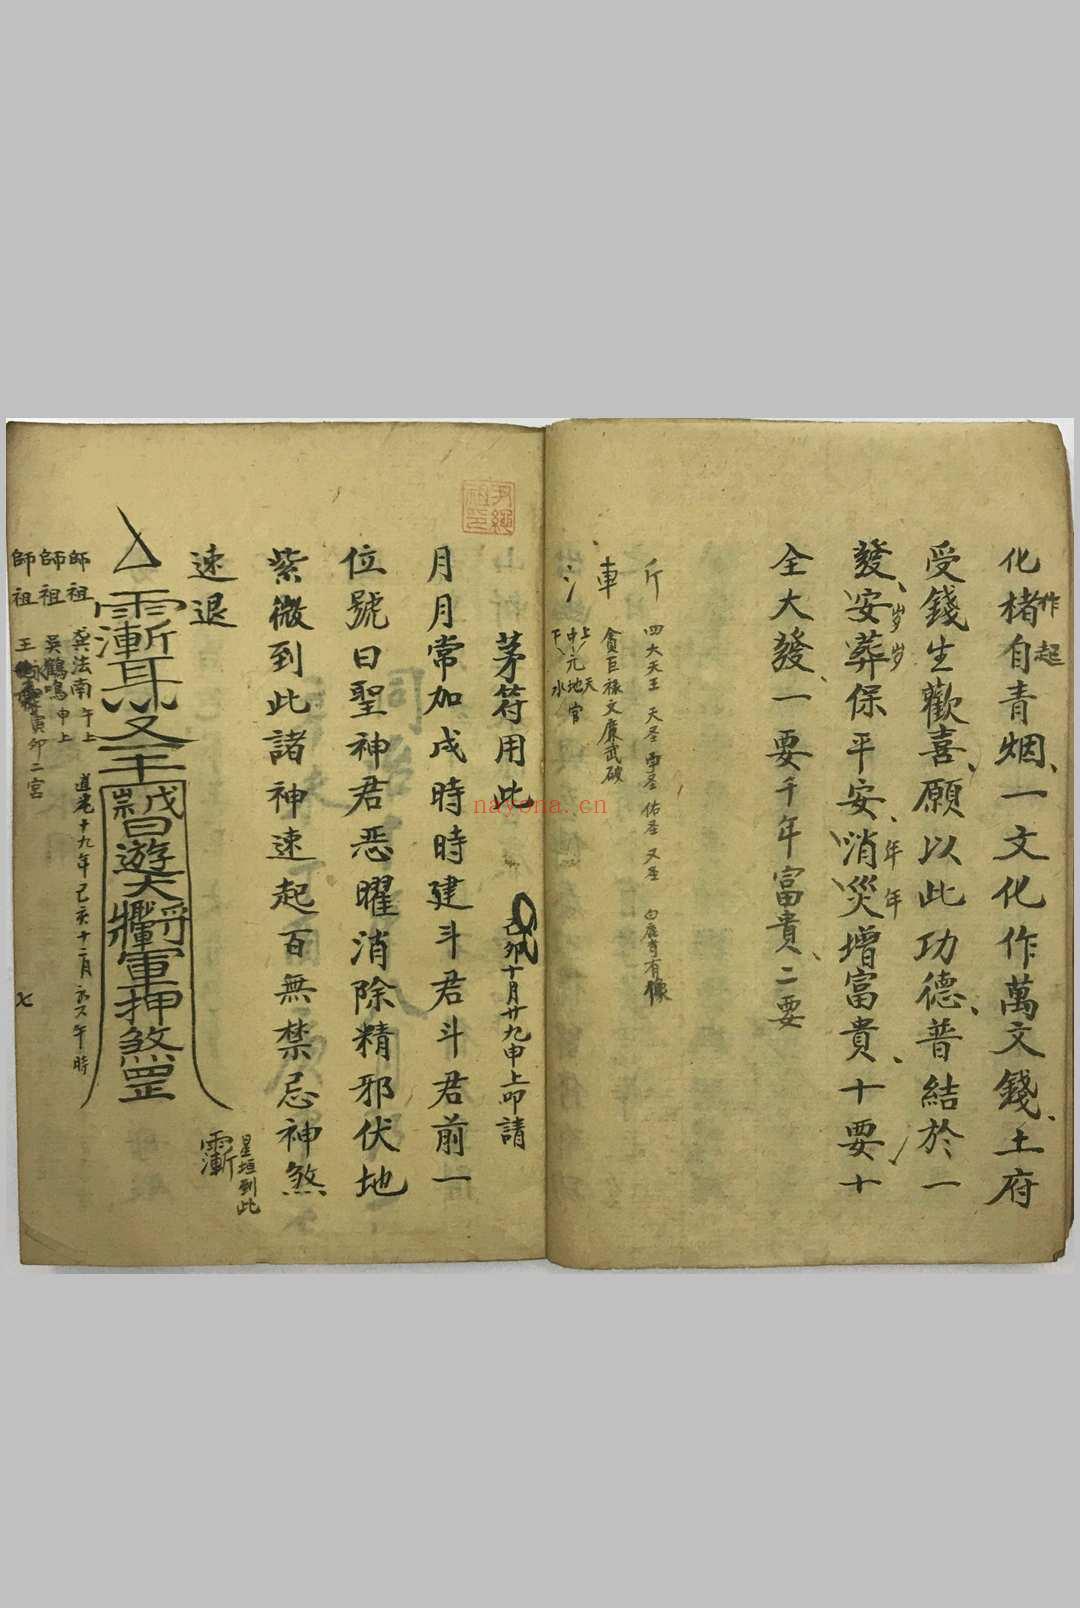 化楮自青烟、一文化作萬文錢、土府
作起
受錢生歡喜、願以此功德、普結於一
發、安葬保平安、消災增富貴、十要十
歲歲
年年
全大發、一要千年富貴、二要
斤 四大天王 天圣 佑圣 又圣 有像
車 貪巨祿文廉武破
氵 上中下元 天地水官
茅符用此 己卯十月廿九申上叩請
月月常加戌時時建斗君斗君前一
位號曰聖神君惡曜消除精邪伏地
紫微到此諸神速起百無禁忌神煞
速退
星垣到此
日遊大將軍押煞罡
師祖 龚法南 午上
師祖 吳鶴鳴 申上
師祖 王 寅卯二宮
道光十九年己亥十二月初六午時
nayona.cn